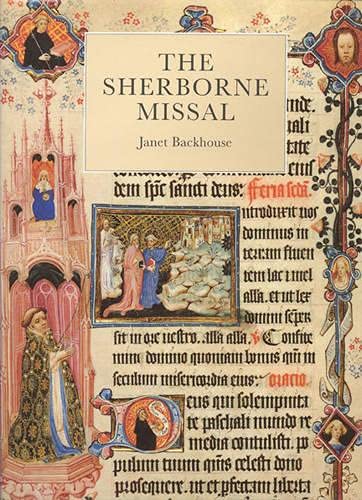 THE
SHERBORNE
MISSAL
Janet Backhouse
tate
dem spc sancti deus: Feria scda.
ntroduxit uos
dominus in
terram fluen
tem lac i mel
alla. et ut lex
domini semper
sit in ore uestro. alla alla. Confite
mini domino quoniam bonus qm in
seculum misericordia eius. Oratio.
Deus qui solempnita
te paschali mundo re
media contulisti. po
pulum tuum qms celesti dono
prosequere. ut et perfectam liberta